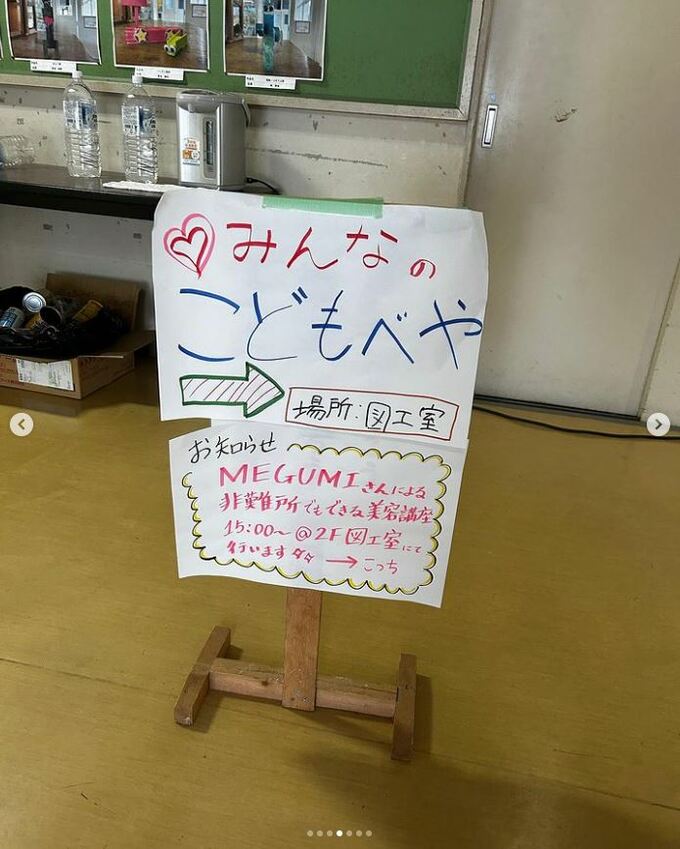 みんなの
こどもべや
場所:図工室
お知らせ
MEGUMIさんによる
非難所でもできる美容講座
15:00〜@2F図工室にて
行います
→こっち